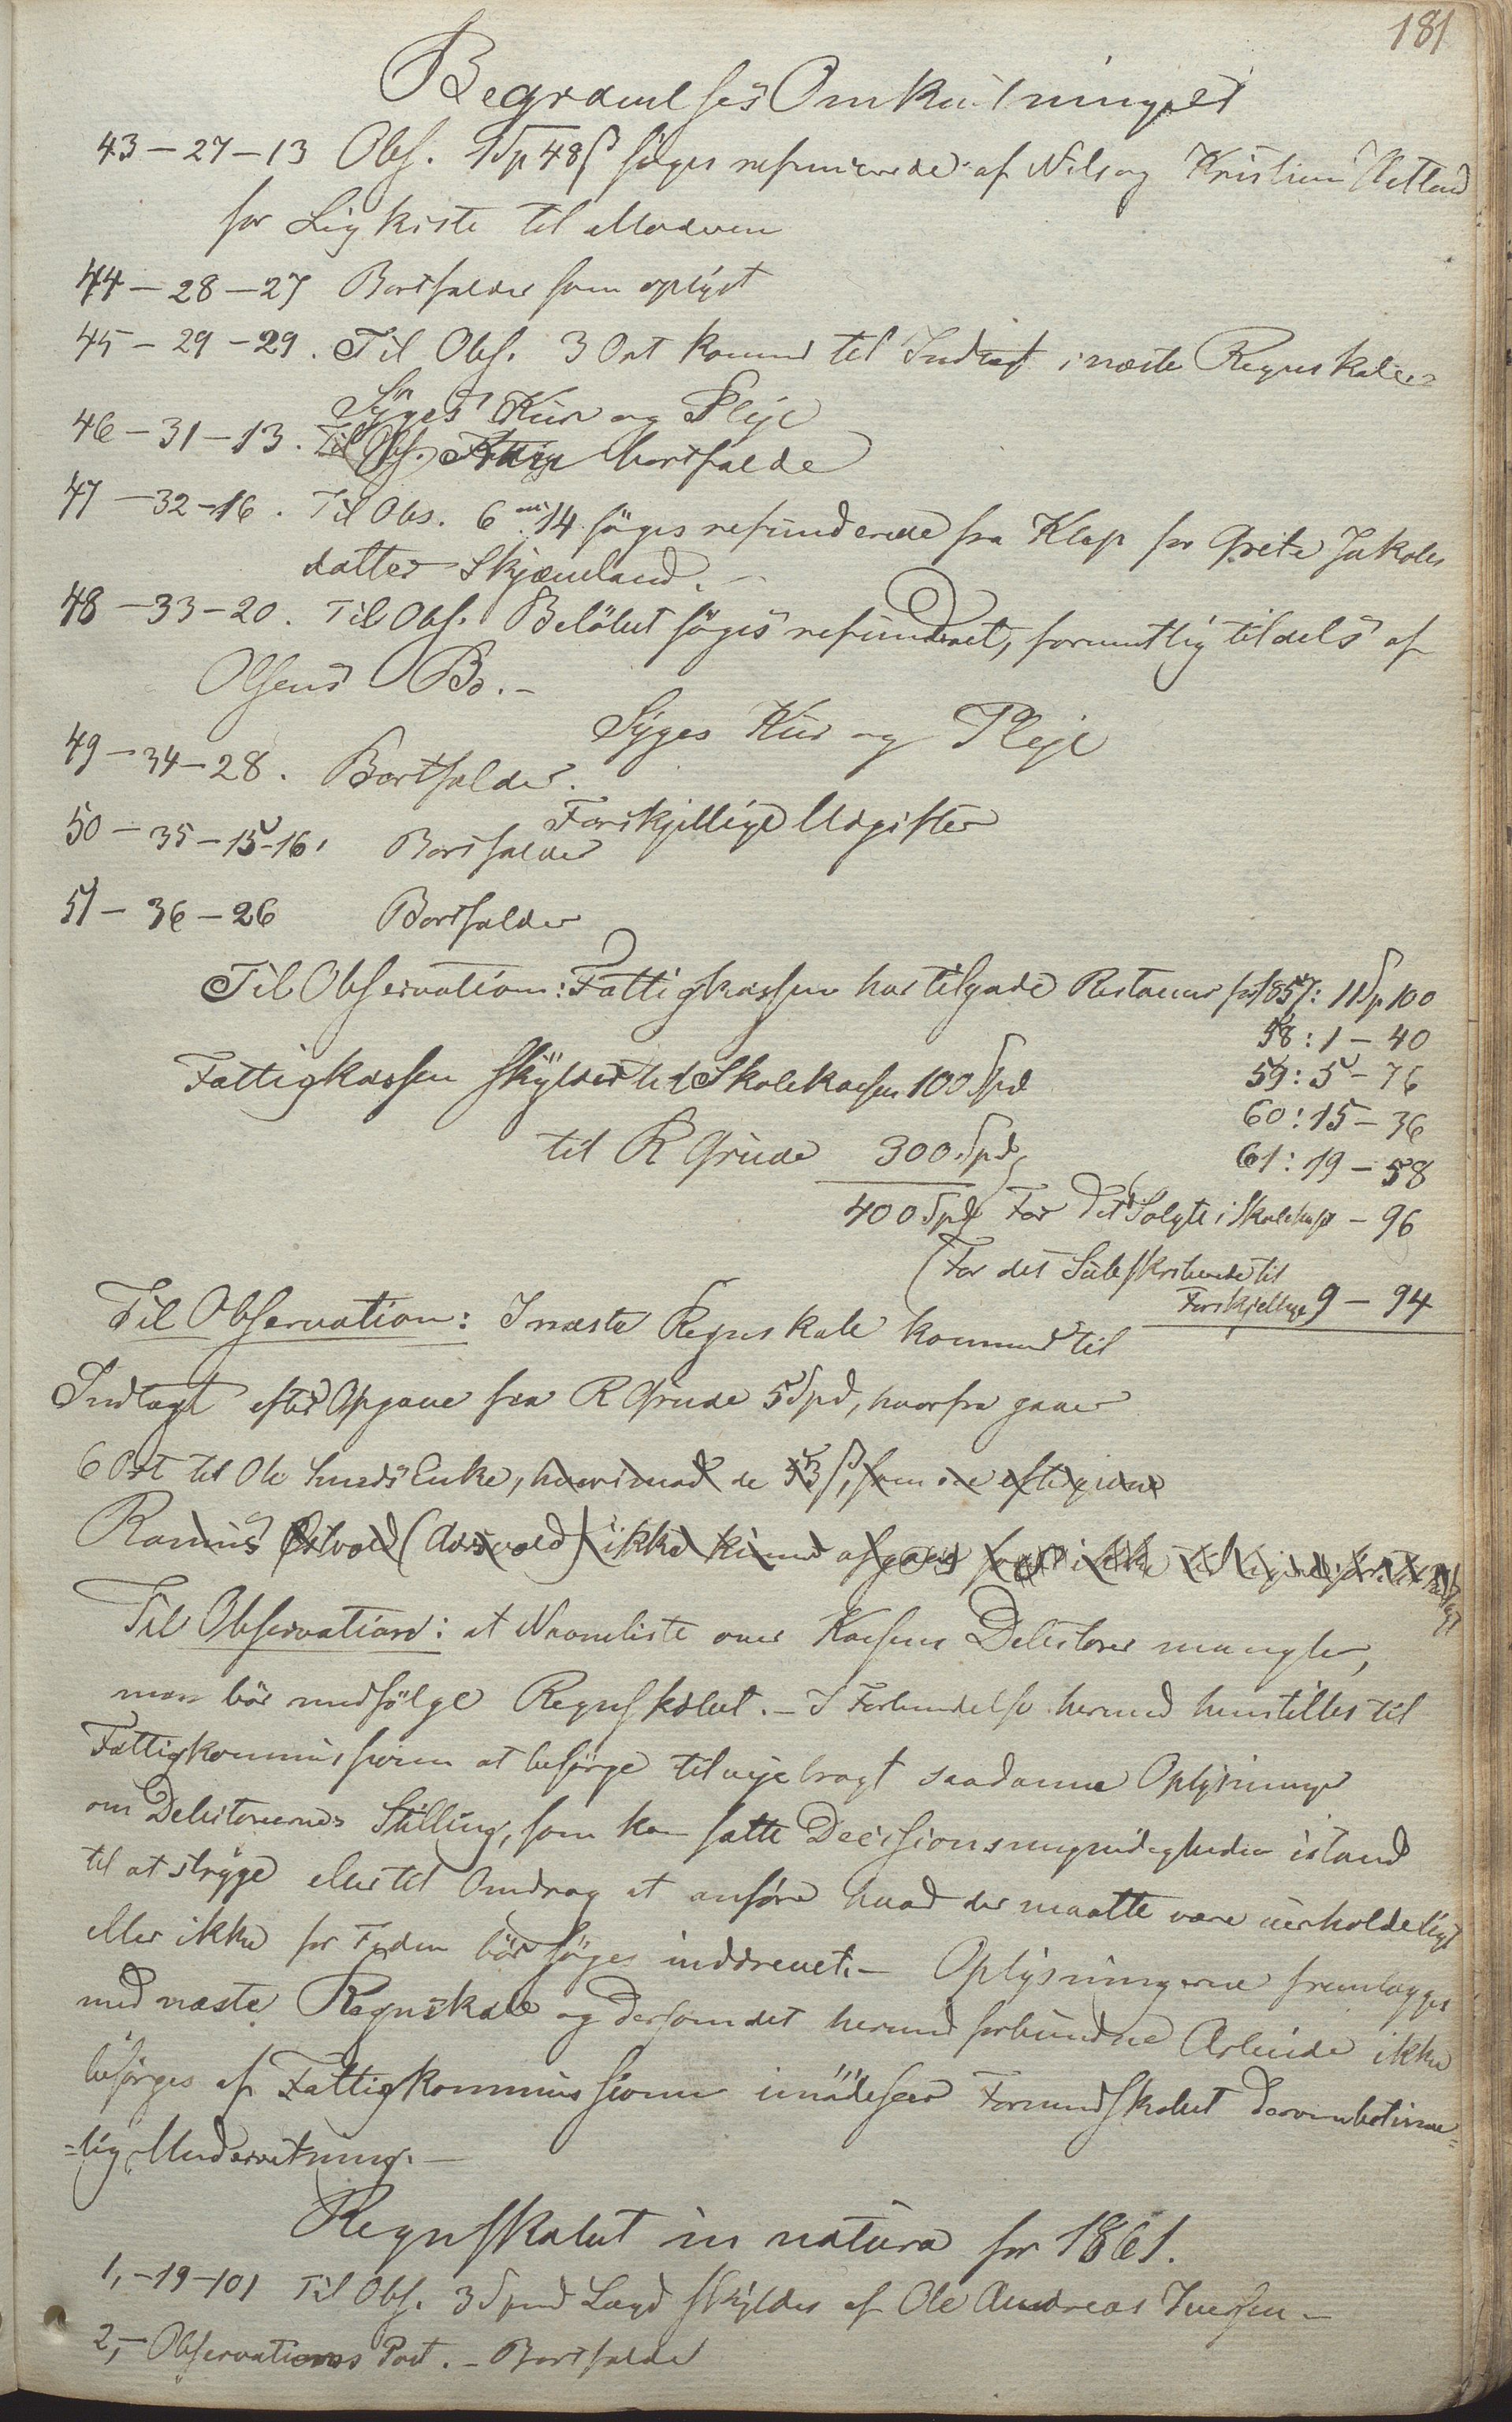 181
Begravelses Omkostninger
43-27-13 Obs. 1Sp 48ß søges refunderede af Nils og Kristine Hetland
for Ligkiste til Moderen
44-28-27 Bortfalder som oplyst
45-29-29. Til Obs. 3 Ort kommer til Indtægt i næste Regnskab
Syges Kur og Pleje
46-31-13. Til Obs. bortfalde
47-32-16. Til Obs. 6 14 søges refunderede fra Klep for Grete Jakobs
datter Skjæveland.
48-33-20. Til Obs. Beløbet søges refunderet, formentlig tildels af
Olsens Bo.-
Syges Kur og Pleje
49-34-28. Bortfalder.
Forskjellige Udgifter
50-35-15-16, Bortfalder
51-36-26 Bortfalder
Til Observation: Fattigkassen har tilgode Restancer for 1857: 11Sp 100
58: 1-40
Fattigkassen skylder til Skolekassen 100 Spd
59: 5-76
60: 15-36
til R Grude 300 Spd
61: 19-58
400 Spd For Det Solgte i Skolehuse -96
For det Subskriberede til
Forskjellige 9-94
Til Observation: I næste Regnskab kommer til
Indtægt efter Opgave fra R Grude 5 Spd, hvorfra gaaer
6 Ort til Ole Enke, hvorimod de 53ß, som ere eftergivne
Rasmus (Aasvold) ikke kunne afgaae
Til Observation: at Navneliste over Kassens Debitorer mangler,
men bør medfølge Regnskabet.- I Forbindelse hermed henstilles til
Fattigkommissionen at besørge tilveiebragt saadanne Oplysninger
om Debitorernes Stilling, som kan sætte Decisionsmyndigheden istand
til at stryge eller til Omdrag at anføre hvad der maatte være uerholdeligt
eller ikke for Tiden bør søges inddrevet.- Oplysningerne fremlægges
med næste Regnskab og dersom det hermed forbundne Arbeide ikke
besørges af Fattigkommissionen imødesees Formandskabet derom betime=
=lig Underretning.-
Regnskabet in natura for 1861.
1,-19-101 Til Obs. 3 Spd Lægd skyldes af Ole Andreas Iversen-
2,- Observations Post.- Bortfalder